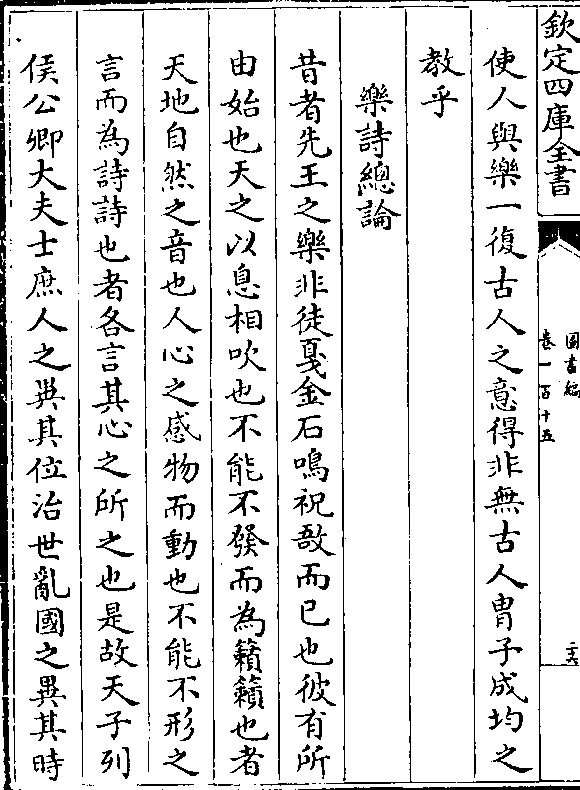 欽定四庫全書
圖書編
卷一百十五
二六
使人與樂一復古人之意得非無古人冑子成均之
教乎
樂詩總論
昔者先王之樂非徒戛金石鳴祝敔而已也彼有所
由始也天之以息相吹也不能不發而為籟籟也者
天地自然之音也人心之感物而動也不能不形之
言而為詩詩也者各言其心之所之也是故天子列
侯公卿大夫士庶人之異其位治世亂國之異其時